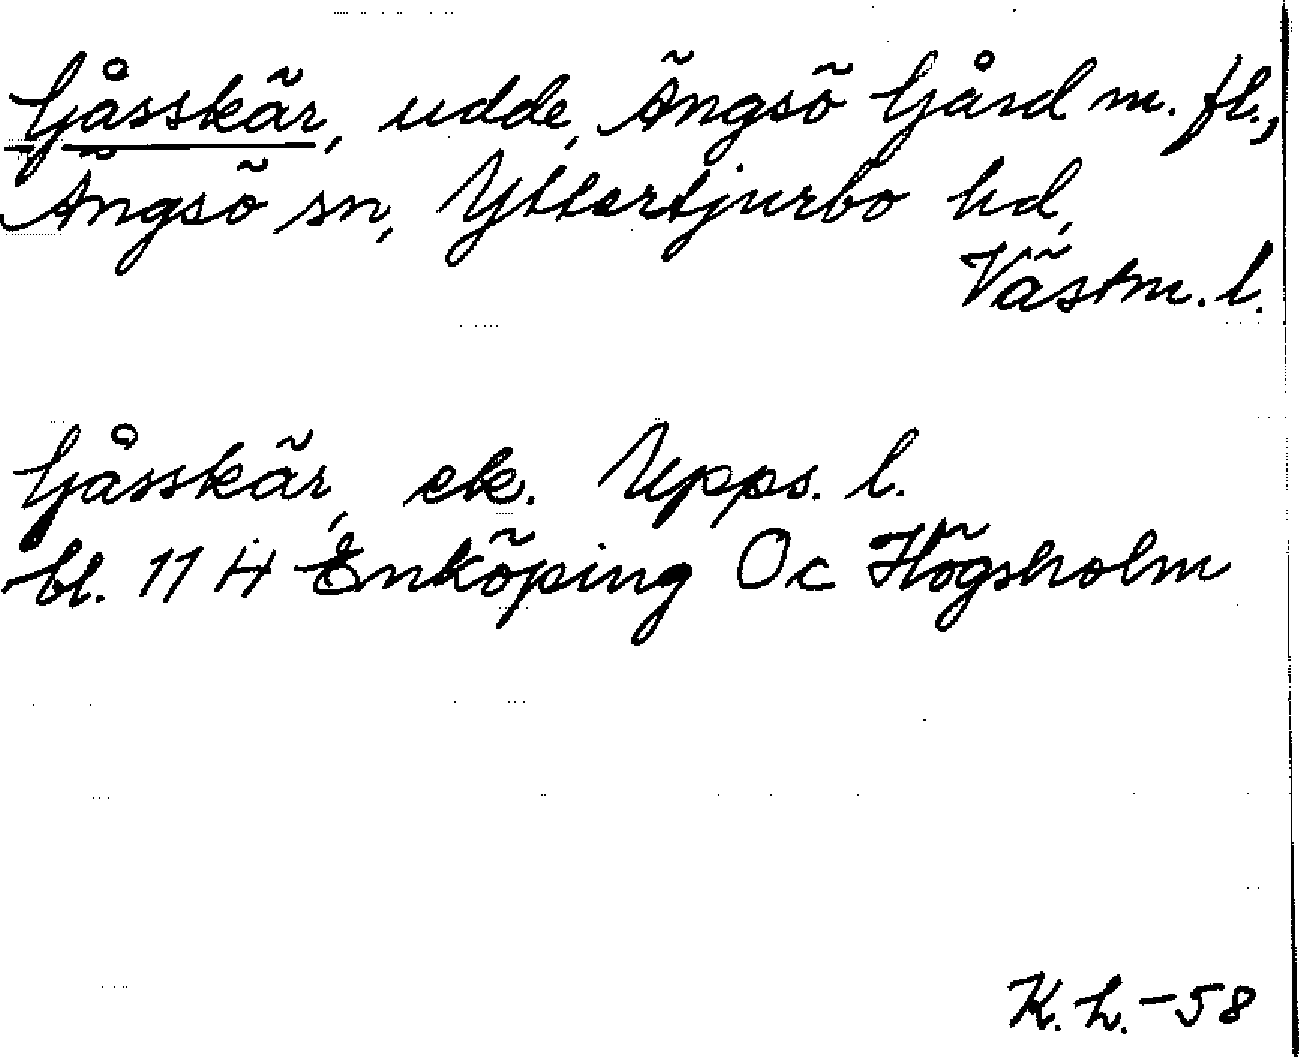 Gåsskär, udde, Ängsö Gård m. fl.,
Ängsö sn, Yttertjurbo hd,
Västm. l.
Gåsskär, ek. Upps. l.
bl. 11 H Enköping 0c Högsholm
K. L. - 58